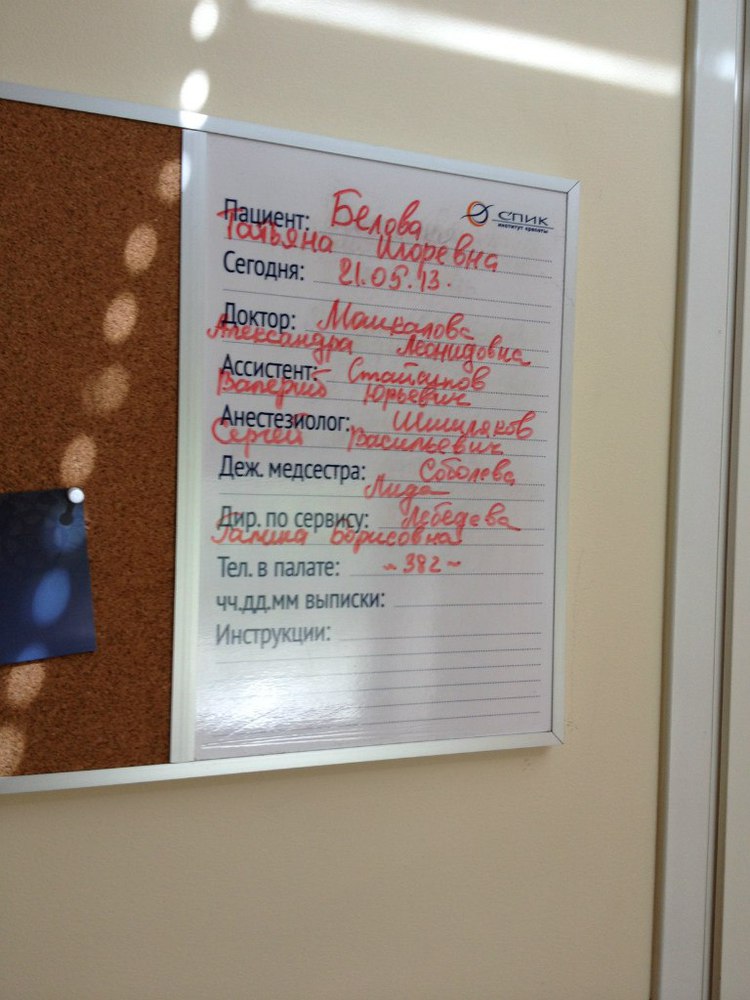 СПИК
институт красоты
Пациент: Белова
Татьяна Игоревна
Сегодня: 21.05.13.
Доктор: Машкалова
Александра Леонидовна
Ассистент:
Валерий Юрьевич
Анестезиолог:
Сергей Васильевич
Деж. медсестра: Соболева
Лида
Дир. по сервису: Лебедева
Галина Борисовна
Тел. в палате: ~ 382 ~
чч.дд.мм выписки:
Инструкции: